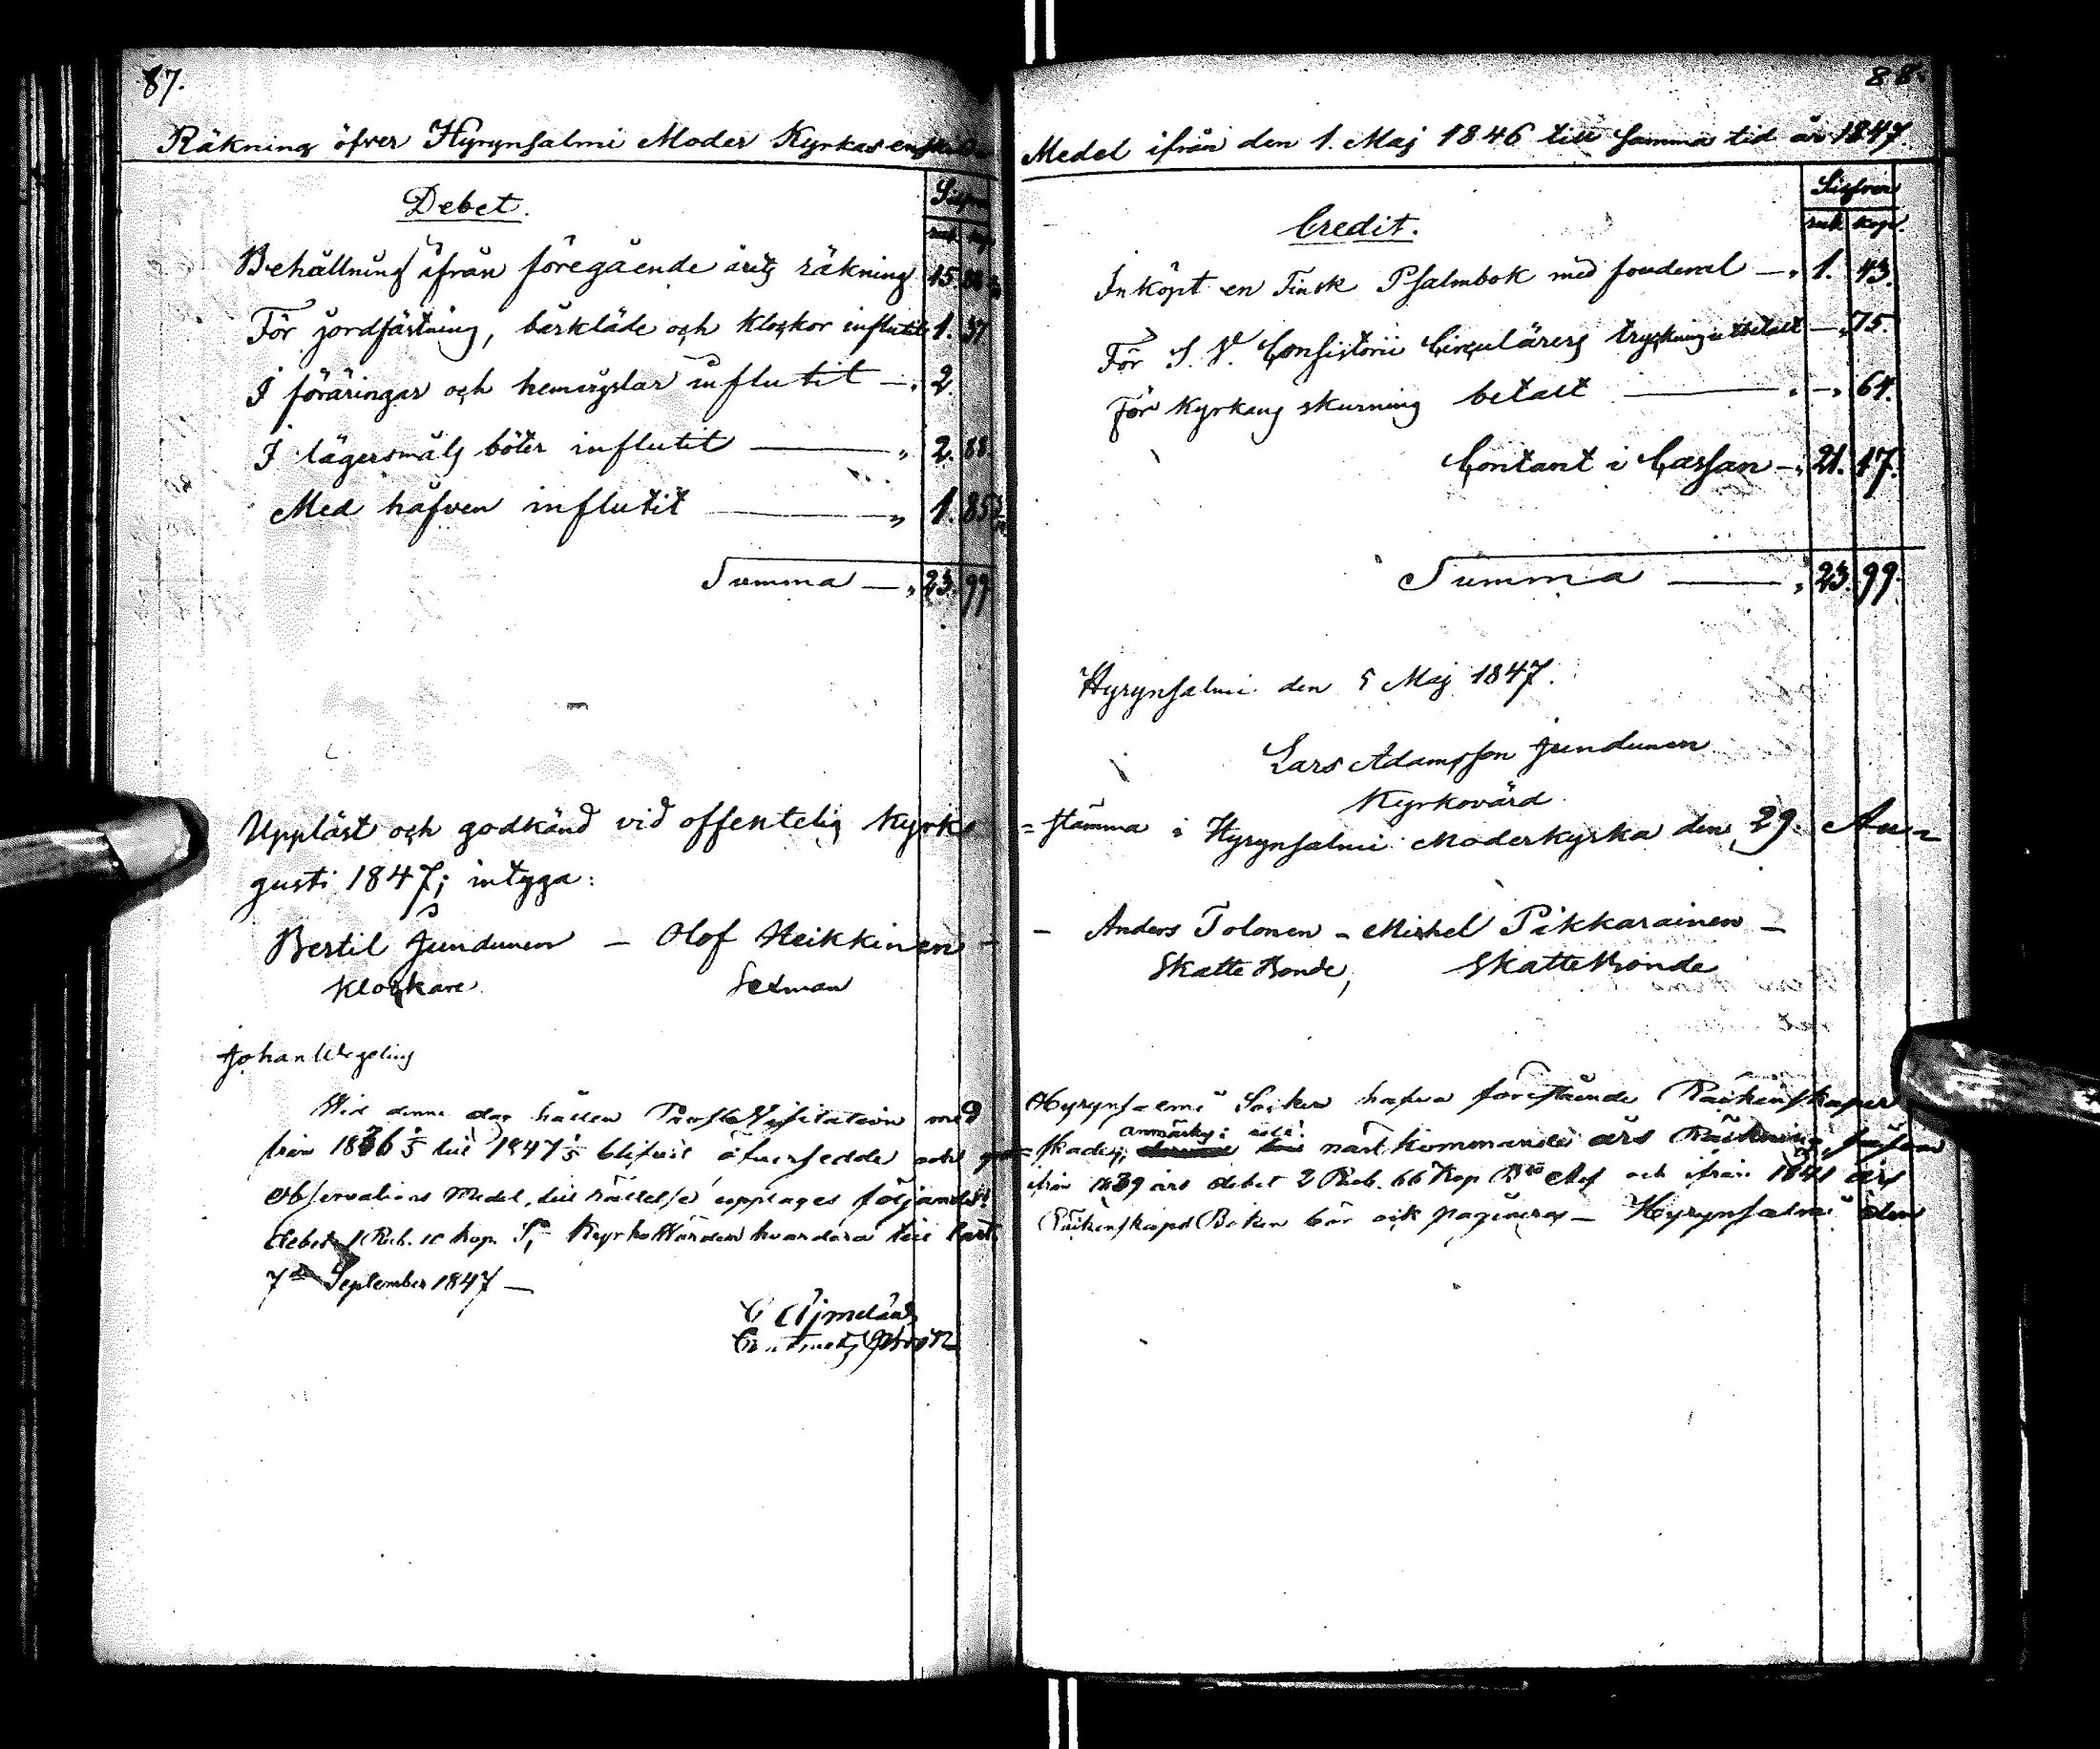 87.
Räkning öfver Hyrynsalmi Moder Kyrkas enskilda
Debet.
Silfver
rub. kop.
Behållning ifrån föregående årets räkning 15. 88
För jordfästning, bårkläde och klockor influtit 1. 37
I föräringar och hemuystar influtit — „ 2.
I lägersmåls böter influtit — „ 2. 88.
Med håfven influtit — „ 1. 85
Summa — „ 23. 99
Uppläst och godkänd vid offentelig Kyrko
gusti 1847; intyga:
Bertil Jundunen — Olof Heikkinen —
Klockare Sexman
Johan Wegelius
Vid denna dag hållen Prosts Visitation med
från 1836 1/5 till 1847 1/5 blifvit öfversedde och
Observations Medel, till rättelse upptages följande:
debet 1 Rub. 10 kop. S, Kyrko Värden
7de September 1847 —
88.
Medel ifrån den 1. Maj 1846 till samma tid år 1847.
Credit.
Silfver
rub. kop.
Inköpt en Finsk Psalmbok med fouderal — „ 1. 43.
För S. V. Consistorii Circulärers tryckning utbetalt — „ 75.
För Kyrkans skurning betalt — „ — „ 64.
Contant i Cassan — „ 21. 17.
Summa — „ 23. 99.
Hyrynsalmi den 5 Maj 1847.
Lars Adamsson Jundunen
Kyrkovärd
= stämma i Hyrynsalmi Moderkyrka den 29. Au=
— Anders Tolonen — Michel Pikkarainen —
Skatte Bonde, Skatte Bonde
Hyrynsalmi Socken hafva förestående Räkenskaper
anmärkes
näst kommande års Räkning,
ifrån 1839 års debet 2 Rub. 66 Kop och ifrån 1841 års
Räkenskaps Boken bör ock pagineras — Hyrynsalmi den